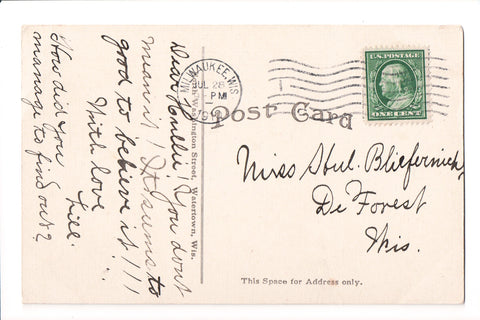 Dear Huldi! You don't
mean it! It seems to
good to believe it!!!
With love
Lill.
How did you
manage to find out?
Washington Street, Watertown, Wis.
MILWAUKEE, WIS.
JUL 28
PM
Post Card
U.S. POSTAGE
ONE CENT
Miss
De Forest
Wis.
This Space for Address only.